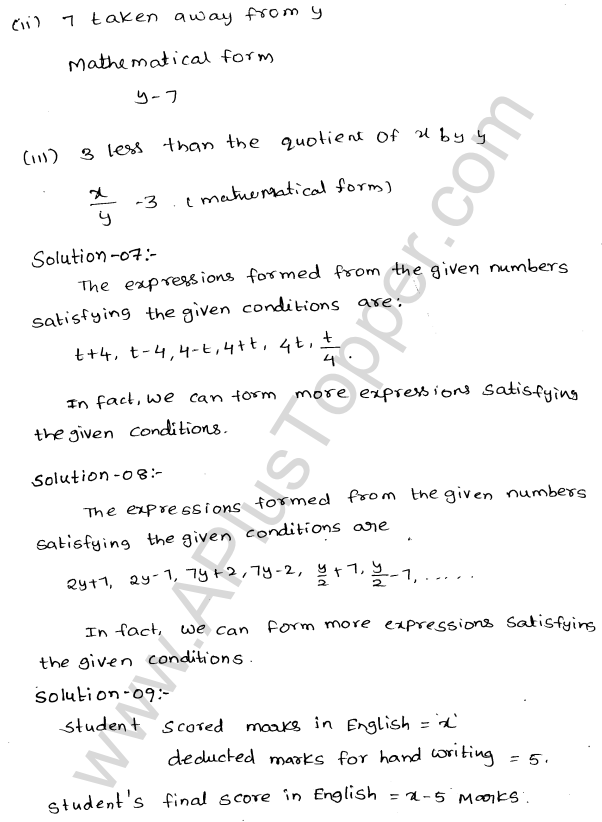 (ii) 7 taken away from y
Mathematical form
y-7
(iii) 3 less than the quotient of x by y
x/y -3 . (mathematical form)
Solution-07:-
The expressions formed from the given numbers
satisfying the given conditions are:
t+4, t-4, 4-t, 4+t, 4t, t/4.
In fact, we can form more expressions satisfying
the given conditions.
Solution-08:-
The expressions formed from the given numbers
satisfying the given conditions are
2y+7, 2y-7, 7y+2, 7y-2, y/2+7, y/2-7, .....
In fact, we can form more expressions satisfying
the given conditions.
Solution-09:-
Student scored marks in English = 'x'
deducted marks for hand writing = 5.
Student's final score in English = x-5 Marks.
www.APlusTopper.com